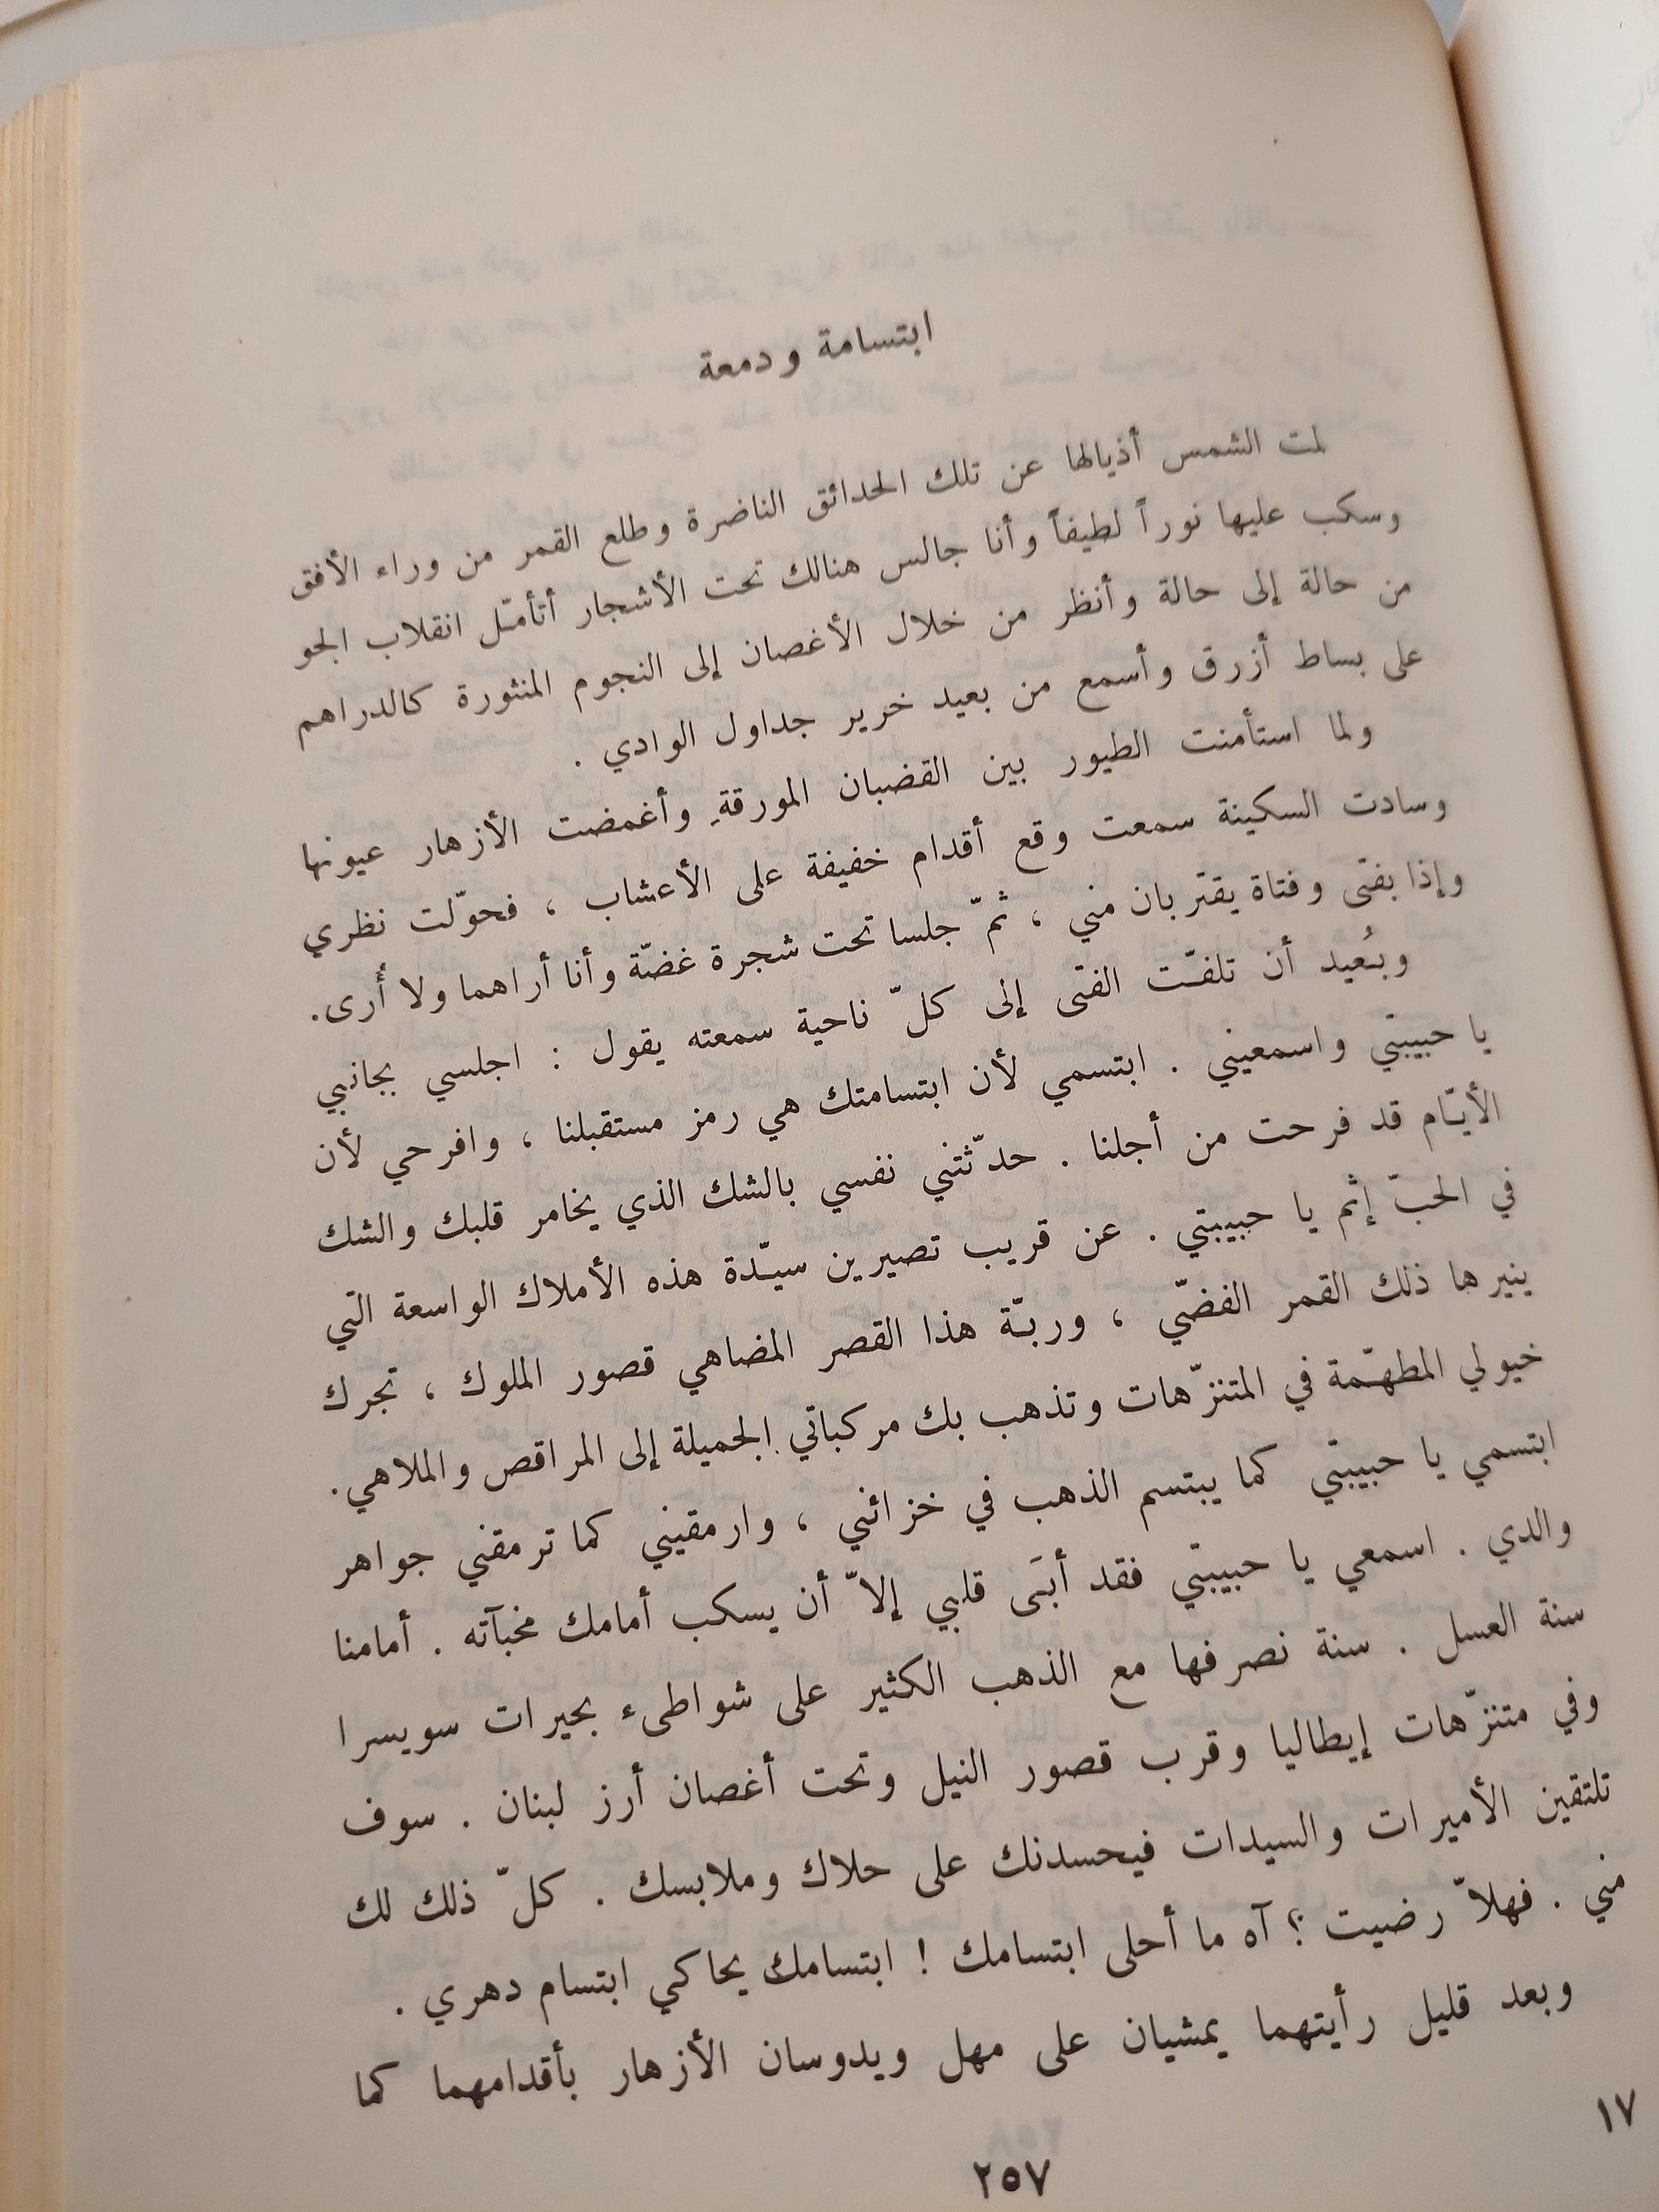 ابتسامة ودمعة
لمت الشمس أذيالها عن تلك الحدائق الناضرة وطلع القمر من وراء الأفق
وسكب عليها نوراً لطيفاً وأنا جالس هنالك تحت الأشجار أتأمّل انقلاب الجو
من حالة إلى حالة وأنظر من خلال الأغصان إلى النجوم المنثورة كالدراهم
على بساط أزرق وأسمع من بعيد خرير جداول الوادي .
ولما استأمنت الطيور بين القضبان المورقةِ وأغمضت الأزهار عيونها
وسادت السكينة سمعت وقع أقدام خفيفة على الأعشاب ، فحوّلت نظري
وإذا بفتى وفتاة يقتربان مني ، ثمّ جلسا تحت شجرة غضّة وأنا أراهما ولا أُرى.
وبُعيد أن تلفّت الفتى إلى كلّ ناحية سمعته يقول : اجلسي بجانبي
يا حبيبتي واسمعيني . ابتسمي لأن ابتسامتك هي رمز مستقبلنا ، وافرحي لأن
الأيّام قد فرحت من أجلنا . حدّثتني نفسي بالشك الذي يخامر قلبك والشك
في الحبّ إثم يا حبيبتي . عن قريب تصيرين سيّدة هذه الأملاك الواسعة التي
ينيرها ذلك القمر الفضّي ، وربّة هذا القصر المضاهي قصور الملوك ، تجرك
خيولي المطهّمة في المتنزّهات وتذهب بك مركباتي الجميلة إلى المراقص والملاهي.
ابتسمي يا حبيبتي كما يبتسم الذهب في خزائني ، وارمقيني كما ترمقني جواهر
والدي . اسمعي يا حبيبتي فقد أبَى قلبي إلاّ أن يسكب أمامك مخبآته . أمامنا
سنة العسل . سنة نصرفها مع الذهب الكثير على شواطىء بحيرات سويسرا
وفي متنزّهات إيطاليا وقرب قصور النيل وتحت أغصان أرز لبنان . سوف
تلتقين الأميرات والسيدات فيحسدنك على حلاك وملابسك . كلّ ذلك لك
مني . فهلاّ رضيت ؟ آه ما أحلى ابتسامك ! ابتسامك يحاكي ابتسام دهري .
وبعد قليل رأيتهما يمشيان على مهل ويدوسان الأزهار بأقدامهما كما
١٧
٢٥٧